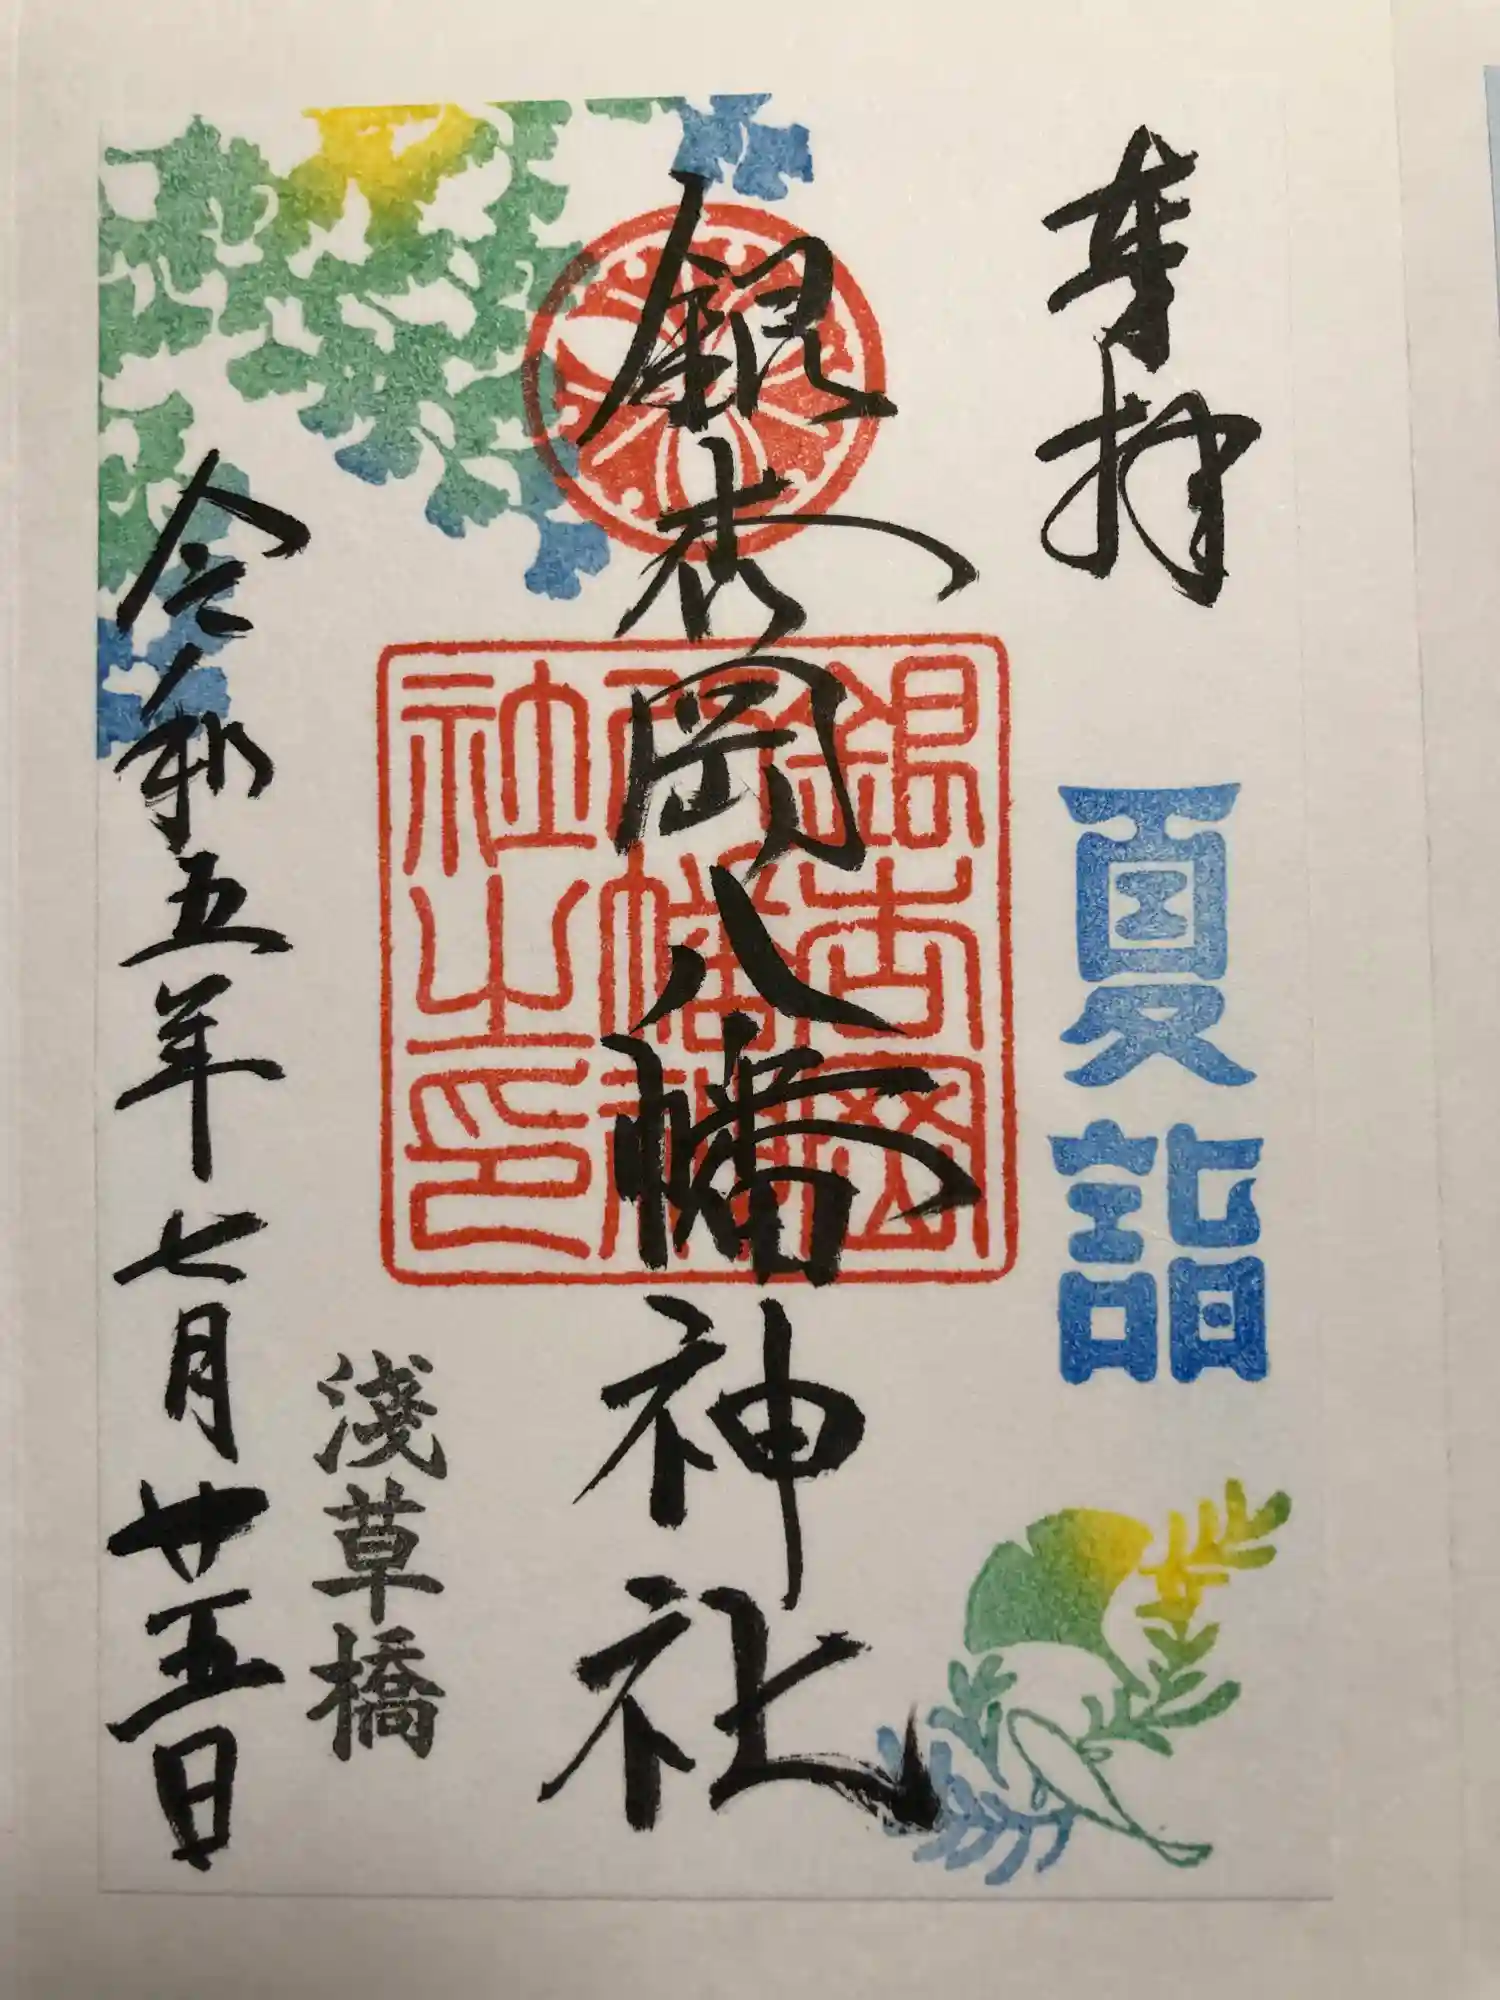 奉拝
夏詣
銀杏岡八幡神社
銀杏岡
八幡神
社之印
淺草橋
令和五年七月廿五日